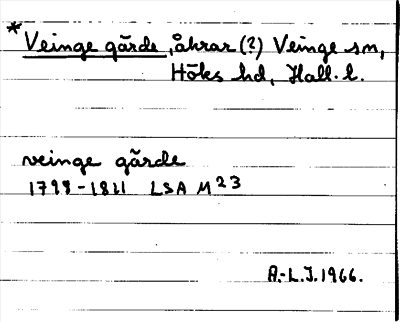 *Veinge gärde, åkrar (?) Veinge sn,
Höks hd, Hall. l.
veinge gärde
1798-1811 LSA M23
A.-L.J. 1966.